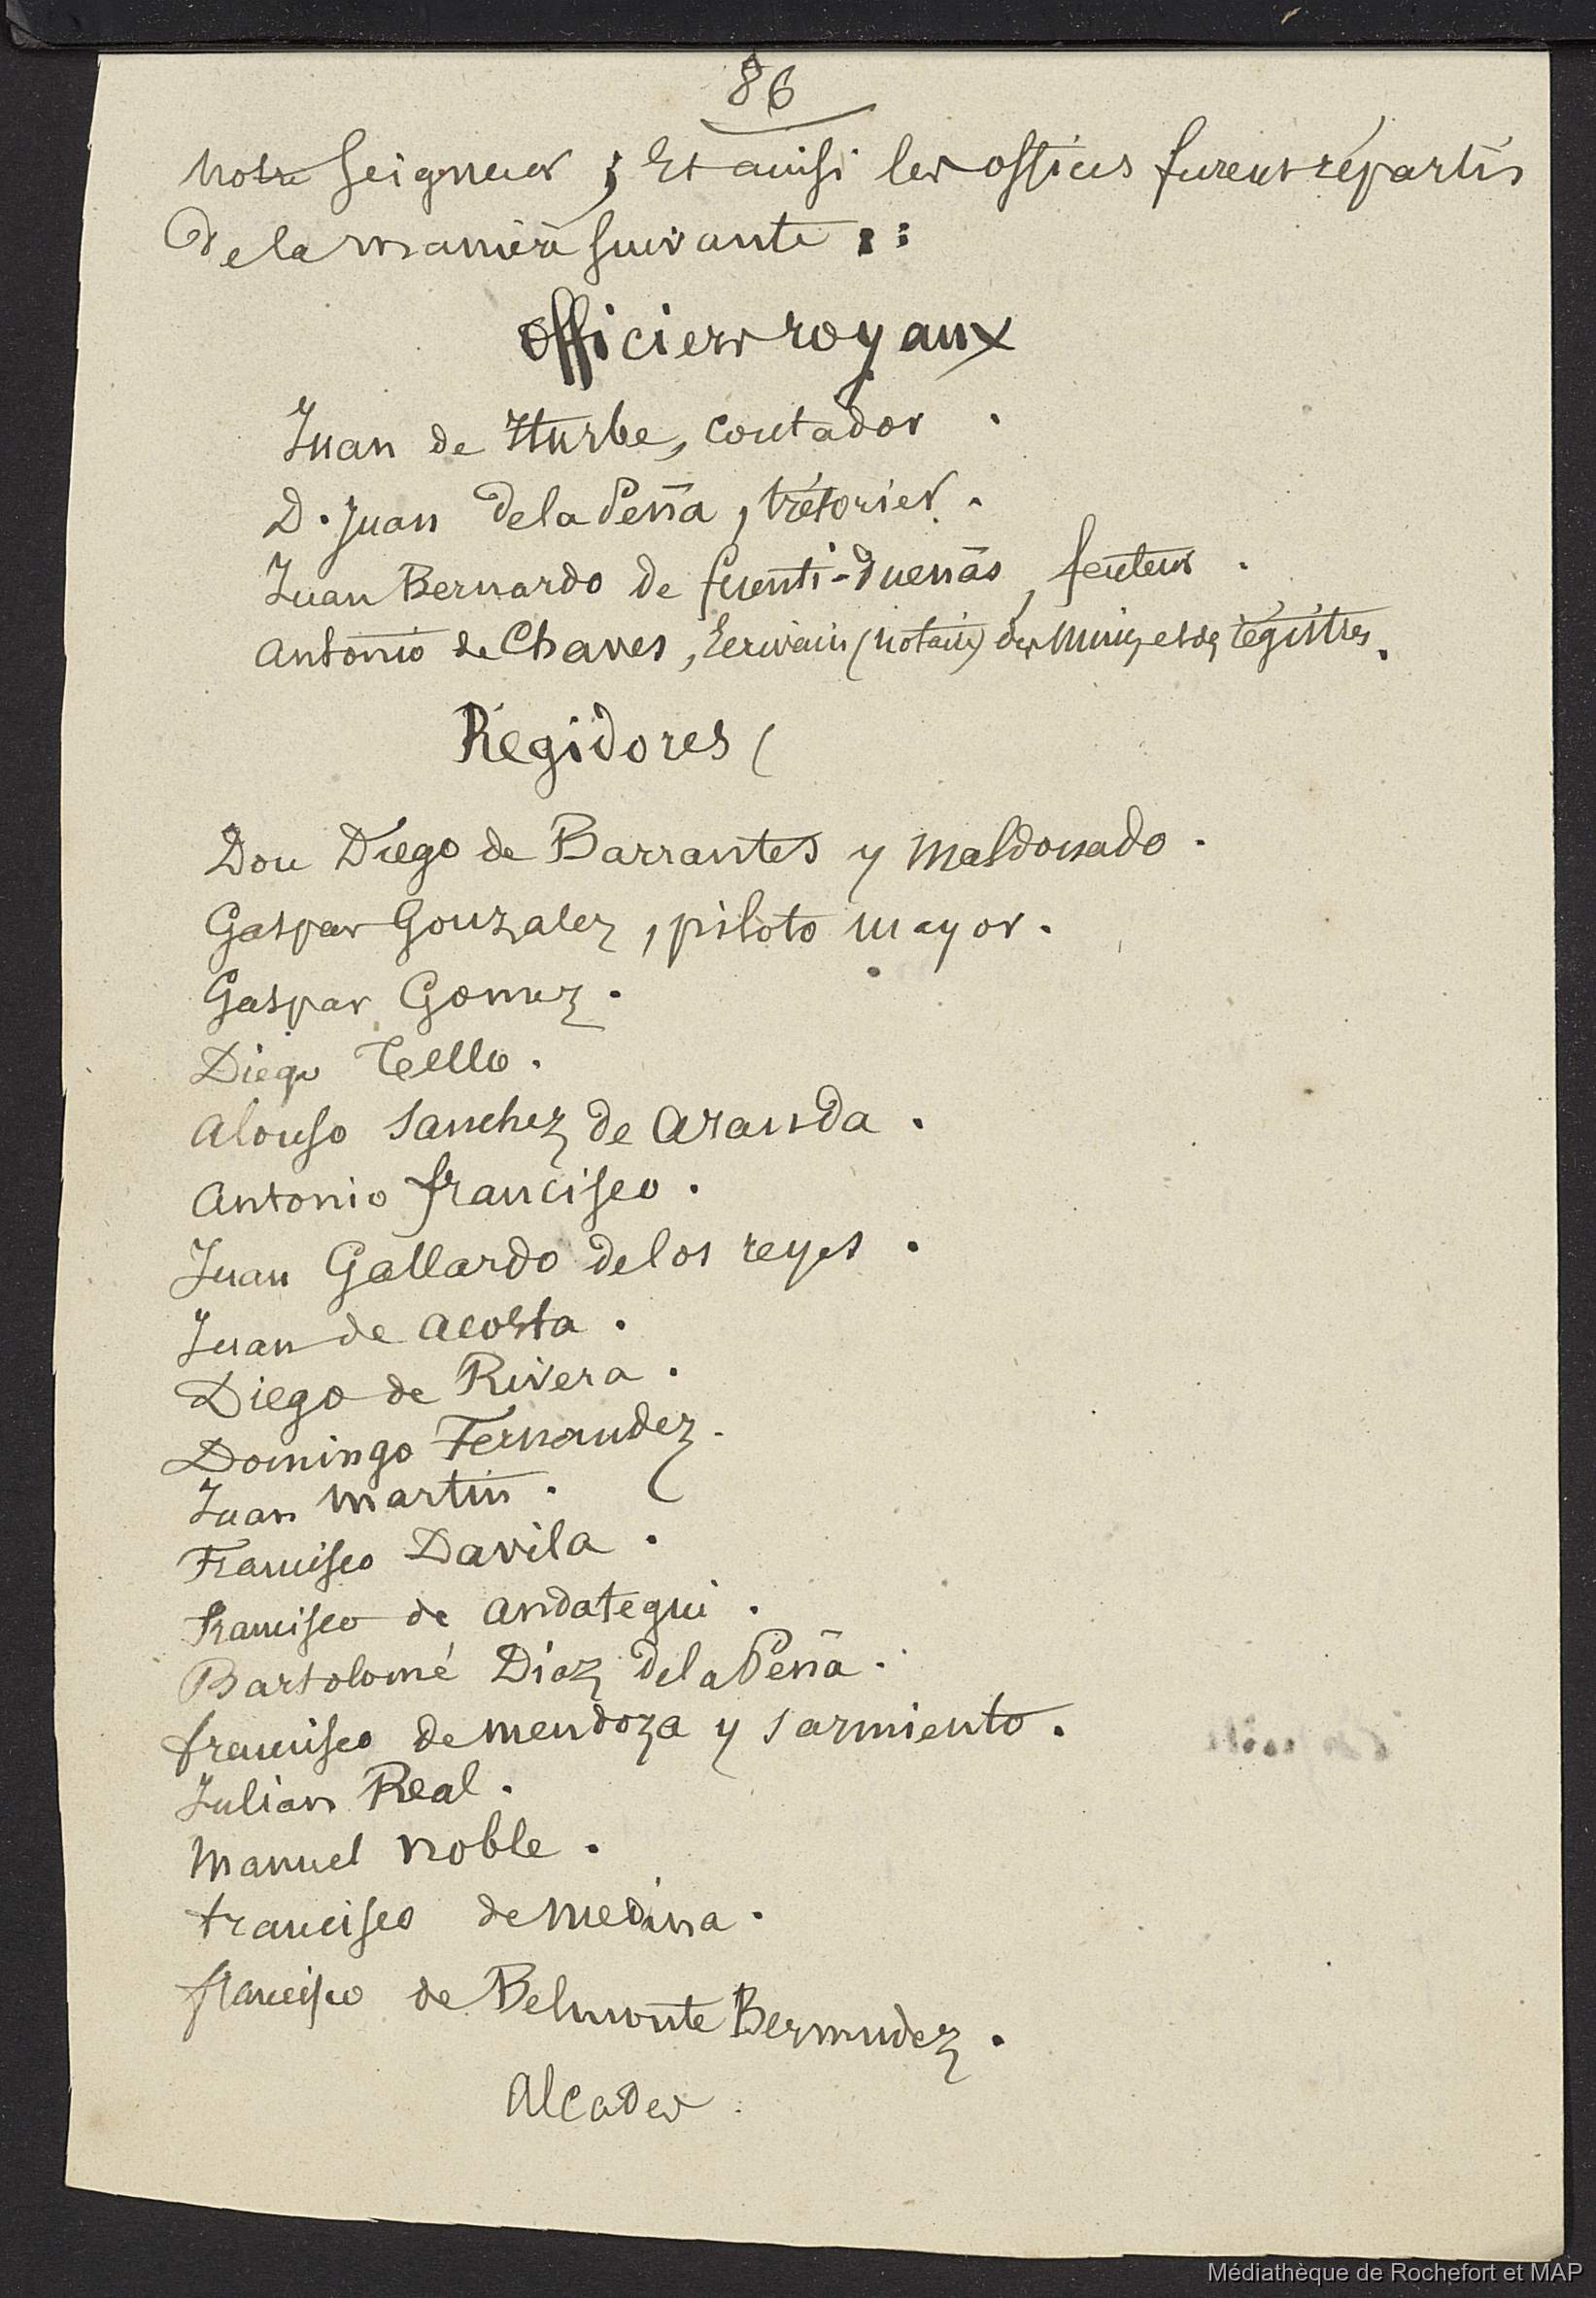 86
Notre Seigneur ; Et ainsi les offices furent répartis
de la manière suivante ::
Officiers royaux
Juan de Iturbe, Contador .
D. Juan de la Peña, trésorier .
Juan Bernardo de fuenti-dueñas, facteur .
Antonio de Chaves, Ecrivain (notaire) des Mines et des régistres.
Regidores (
Don Diego de Barrantes y Maldonado .
Gaspar Gonzalez, piloto mayor .
Gaspar Gomez .
Diego Tello .
Alonso Sanchez de Aranda .
Antonio francisco .
Juan Gallardo de los reyes .
Juan de Acosta .
Diego de Rivera .
Domingo Fernandez .
Juan Martin .
Francisco Davila .
francisco de Andategui .
Bartolomé Diaz de la Peña .
francisco de Mendoza y Sarmiento .
Julian Real .
Manuel Noble .
francisco de Medina .
francisco de Belmonte Bermudez .
Alcades .
Médiathèque de Rochefort et MAP